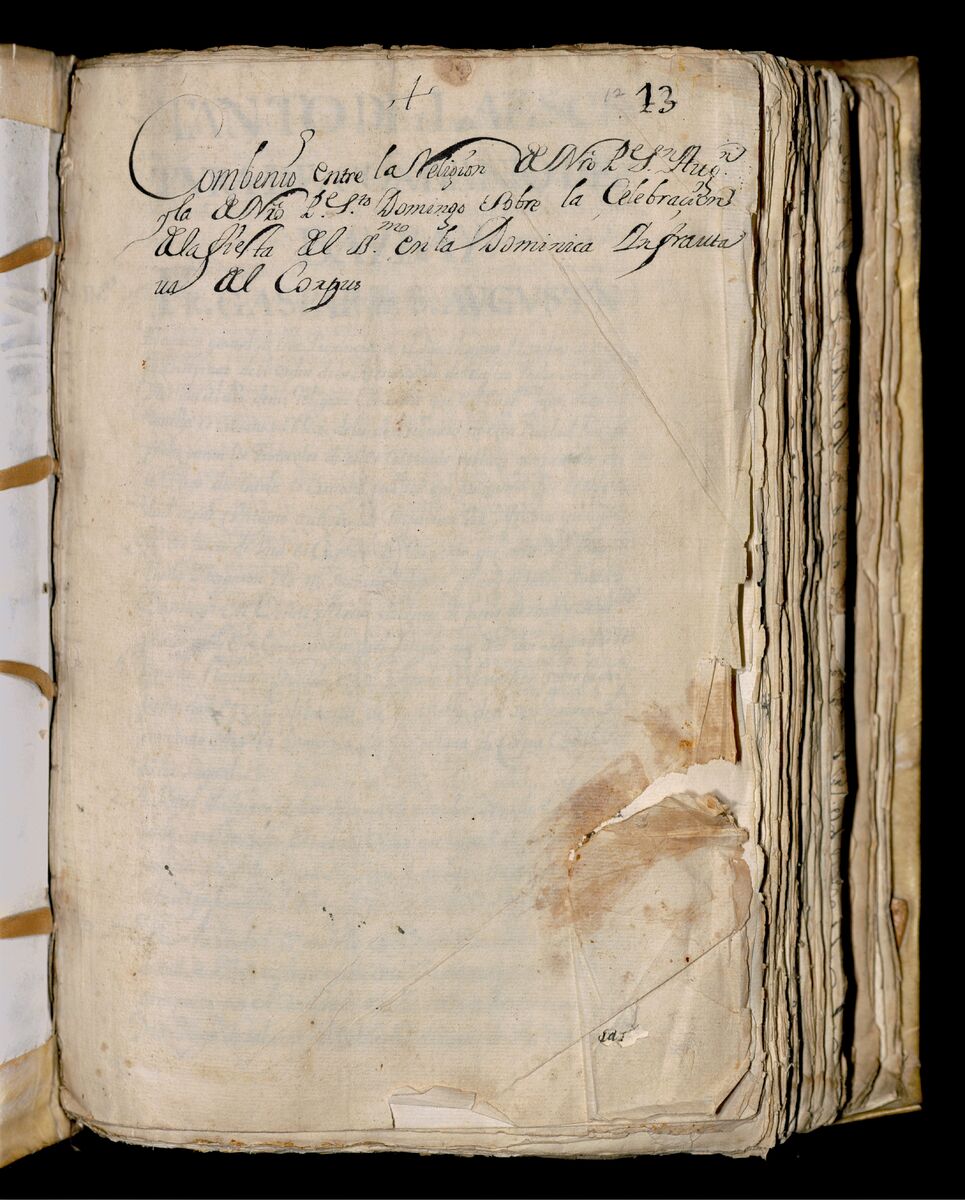 +
12 13
Combenio entre la Religion de Nro Pe. Sn. Augn.
y la de Nro Pe. Sto. Domingo sobre la Celebracion
de la fiesta del SSmo. en la Dominica Infraucta
ua del Corpus